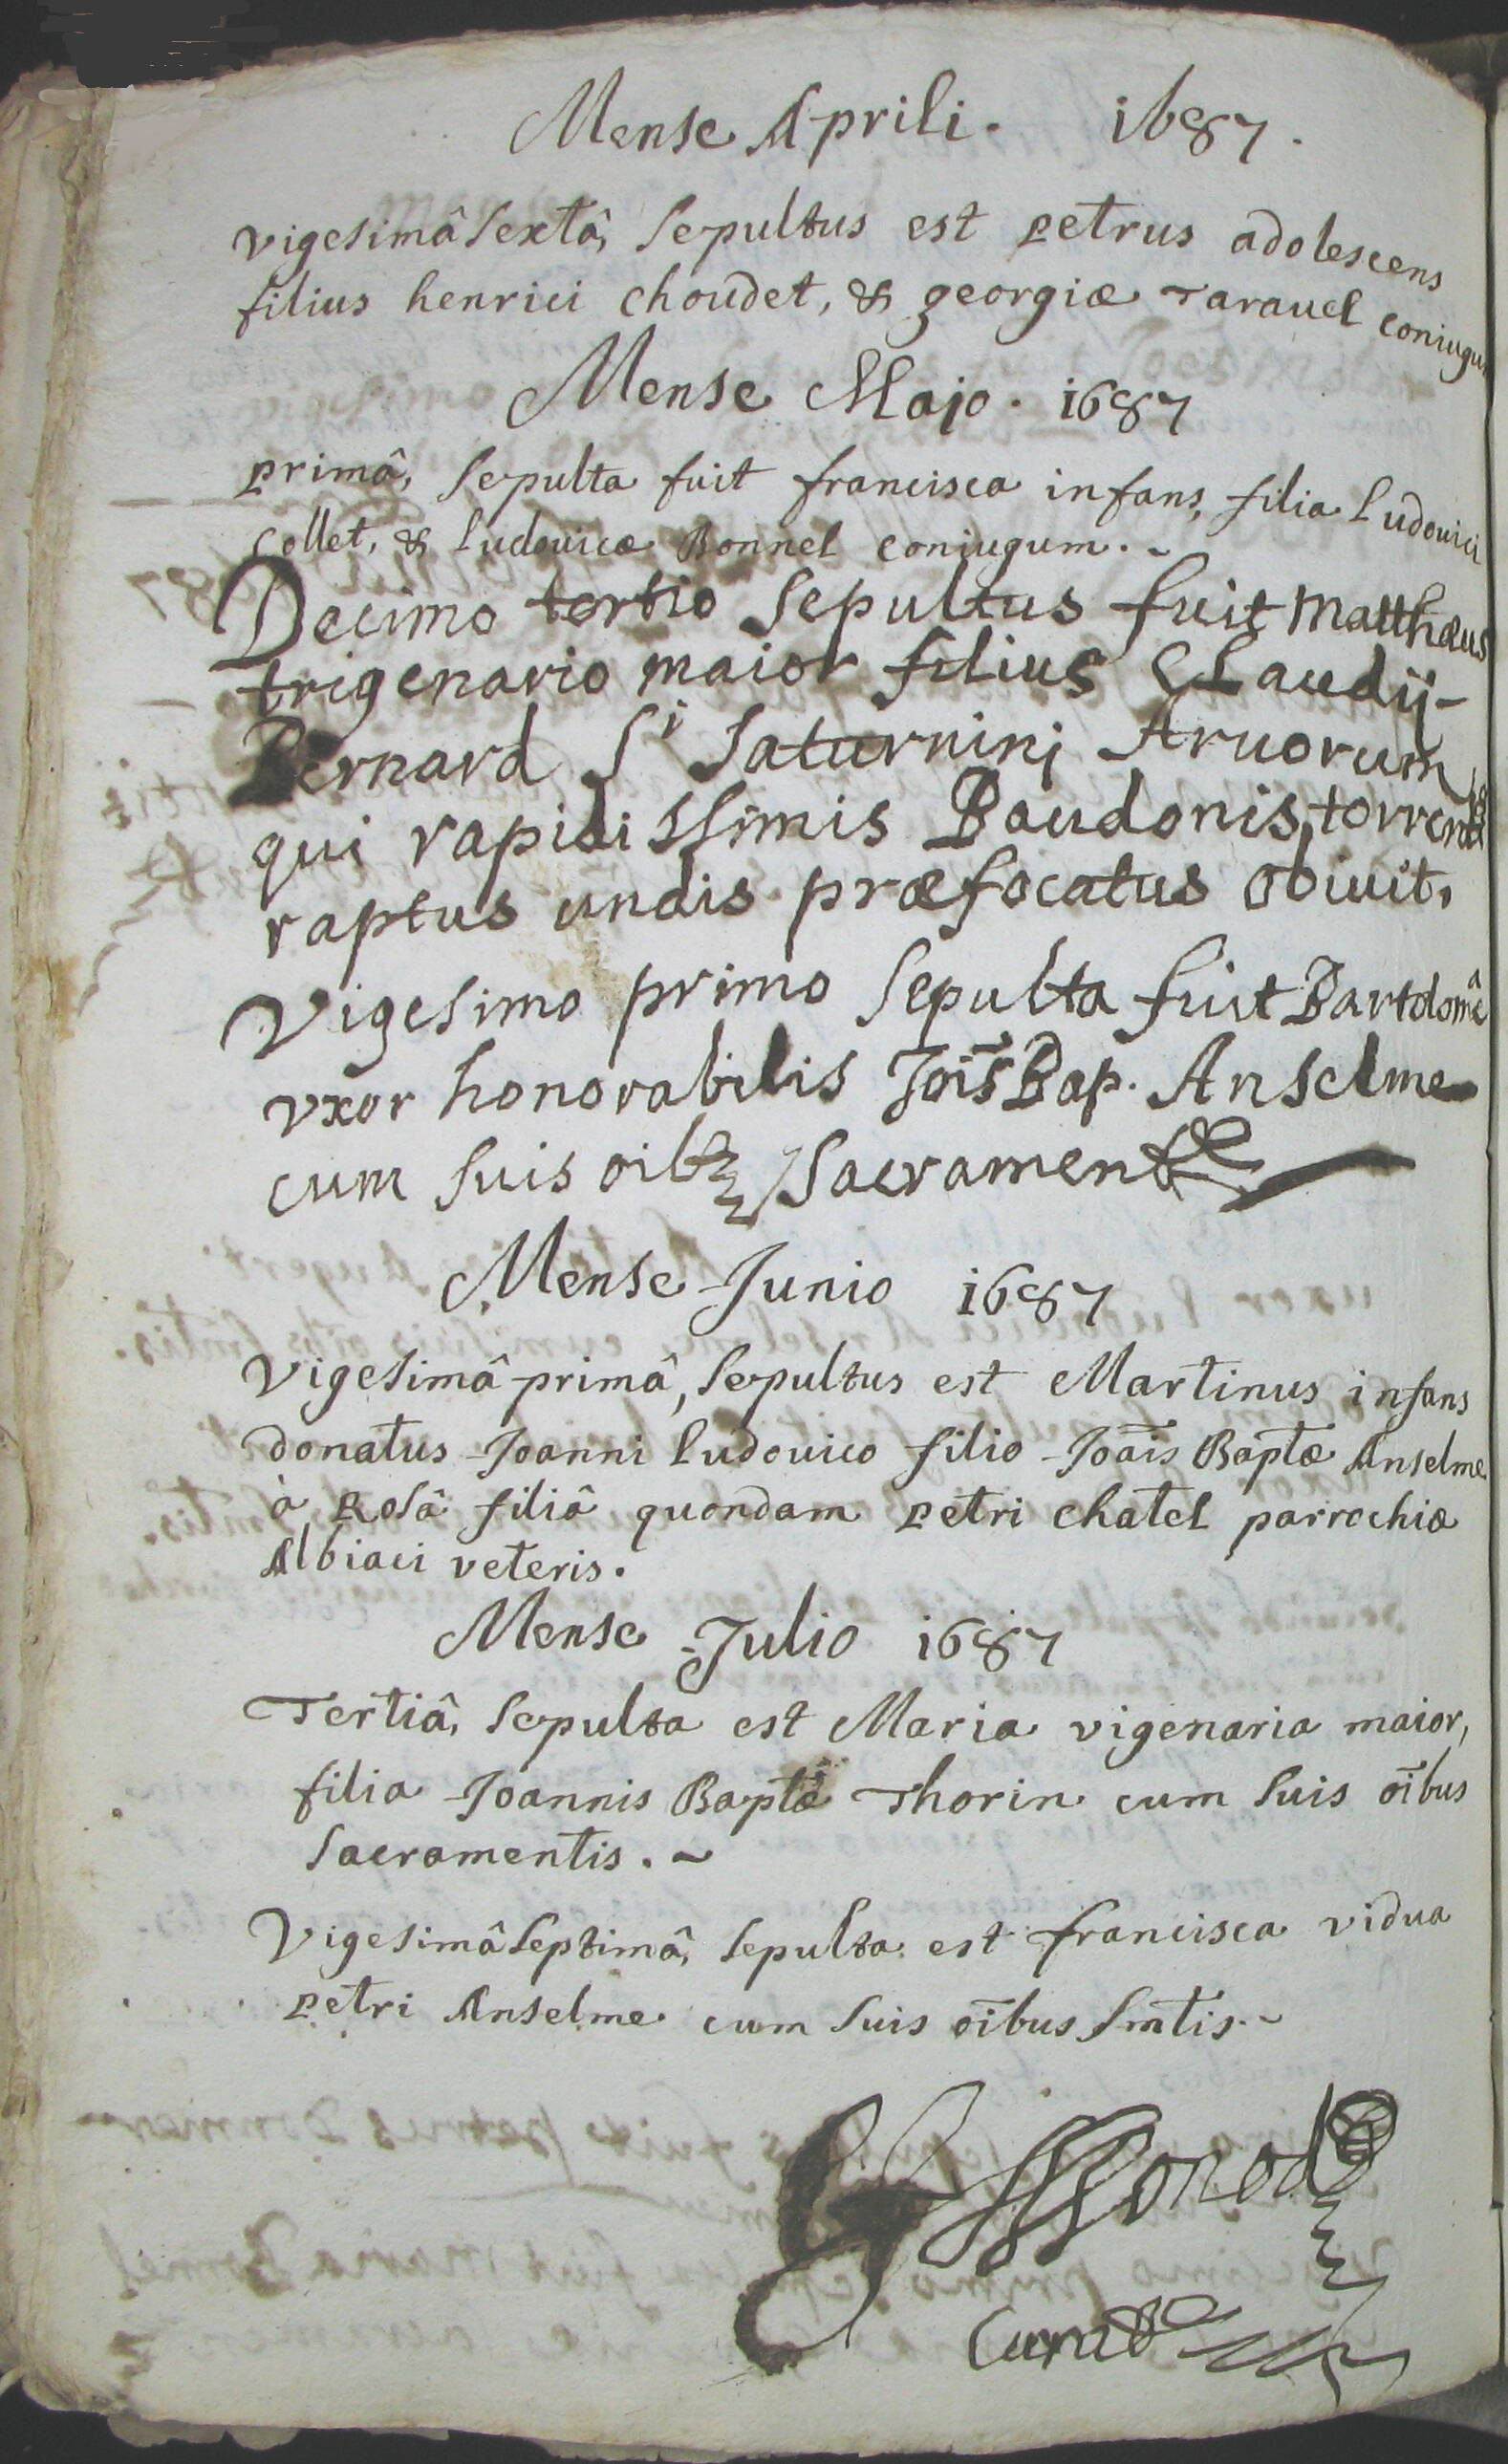 Mense Aprili. 1687.
vigesimâ sextâ, sepultus est petrus adolescens
filius henrici choudet, & georgiæ Tarauel coniugum
Mense Majo. 1687
primâ, sepulta fuit francisca infans, filia ludouici
Collet, & ludouicæ Bonnel coniugum.
Decimo tertio sepultus fuit Matthæus
trigenario maior filius Claudij
Bernard Sti Saturnini Aruorum
qui rapidissimis Baudonis, torrentis
raptus undis præfocatus obiuit,
Vigesimo primo sepulta fuit
vxor honorabilis Jois Bap. Anselme
cum suis oib3 Sacramentis
Mense Junio 1687
Vigesimâ primâ, sepultus est Martinus infans
donatus Joanni ludouico filio Joais Baptæ Anselme
à Rosâ filiâ quondam petri chatel parrochiæ
Albiaci veteris.
Mense Julio 1687
Tertiâ, sepulta est Maria vigenaria maior,
filia Joannis Baptæ Thorin cum suis oibus
sacramentis.
Vigesimâ septimâ, sepulta est francisca vidua
petri Anselme cum suis oibus smtis.